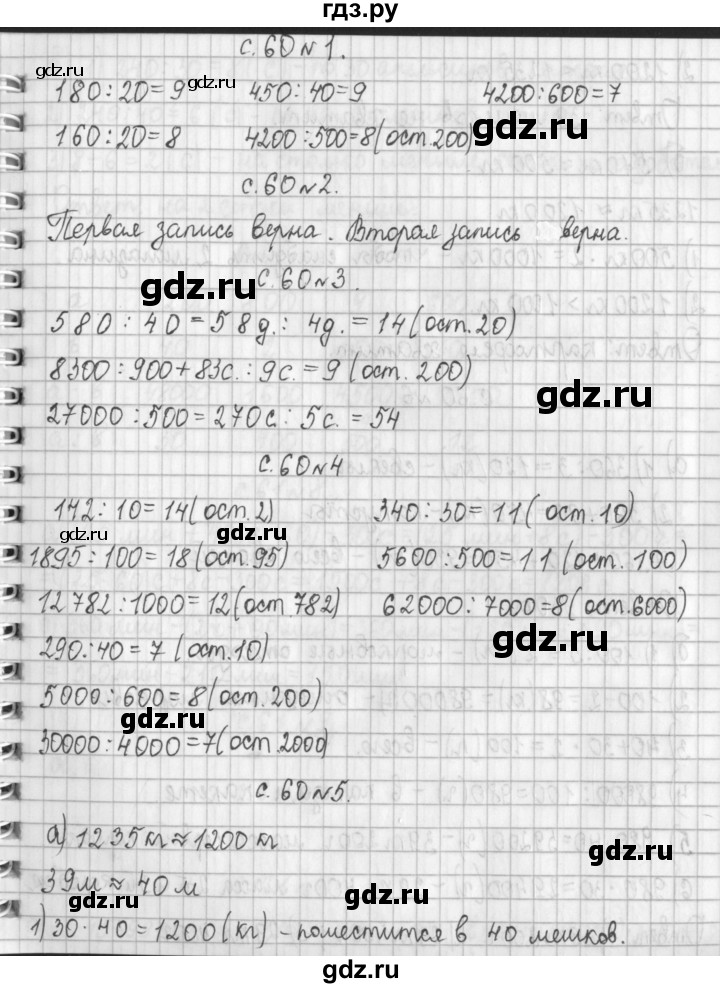 гдз.ру
с.60 №1.
gdz.ru
gdz.ru
180:20=9 450:40=9 4200:600=7
gdz.ru
160:20=8 4200:500=8(ост.200)
gdz.ru
с.60№2.
Первая запись верна. Вторая запись верна.
с.60№3.
gdz.ru
580:40=58д.:4д.=14(ост.20)
8300:900+83с.:9с.=9(ост.200)
gdz.ru
27000:500=270с:5с.=54
с.60№4
142:10=14(ост.2) 340:30=11(ост.10)
gdz.ru
gdz.ru
1895:100=18(ост.95) 5600:500=11(ост.100)
12782:1000=12(ост.782) 62000:7000=8(ост.6000)
gdz.ru
290:40=7(ост.10)
5000:600=8(ост.200)
gdz.ru
30000:4000=7(ост.2000)
с.60№5.
а)1235кг≈1200кг
gdz.ru
39м≈40м
gdz.ru
1)30·40=1200(кг)-поместится в 40 мешков.
gdz.ru